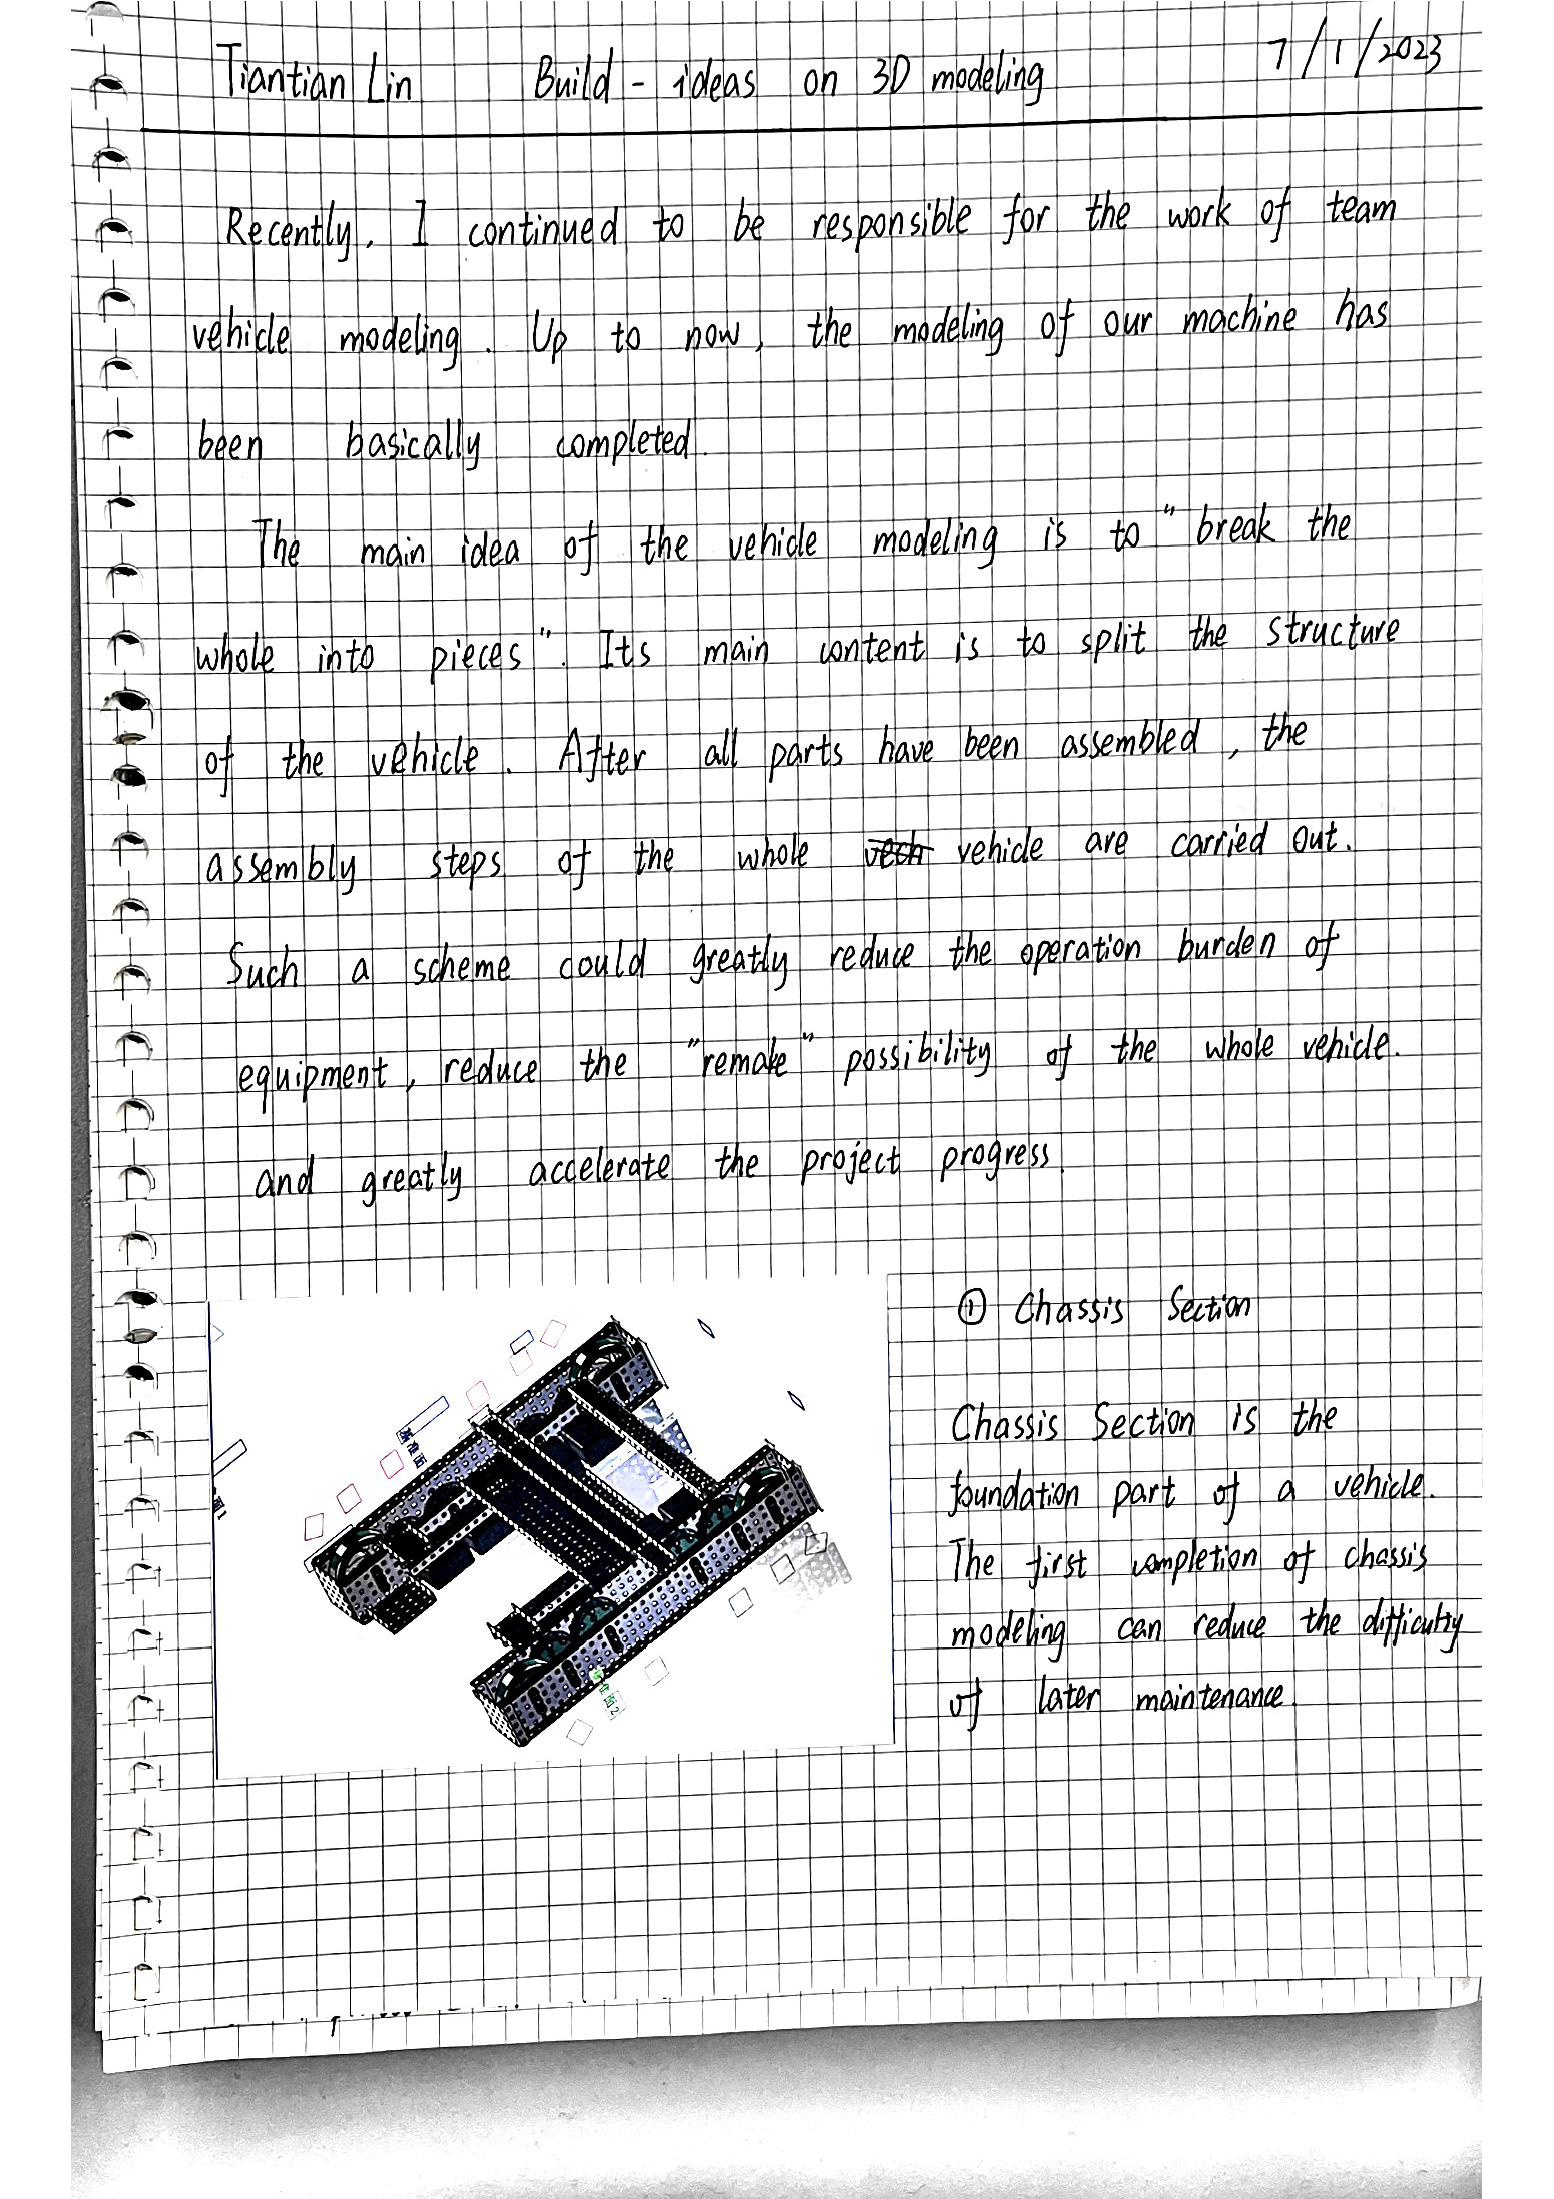 Tiantian Lin Build - ideas on 3D modeling 7/1/2023
Recently, I continued to be responsible for the work of team
vehicle modeling. Up to now, the modeling of our machine has
been basically completed.
The main idea of the vehicle modeling is to "break the
whole into pieces". Its main content is to split the structure
of the vehicle. After all parts have been assembled, the
assembly steps of the whole vech vehicle are carried out.
Such a scheme could greatly reduce the operation burden of
equipment, reduce the "remake" possibility of the whole vehicle.
and greatly accelerate the project progress.
① Chassis Section
Chassis Section is the
foundation part of a vehicle.
The first completion of chassis
modeling can reduce the difficulty
of later maintenance.